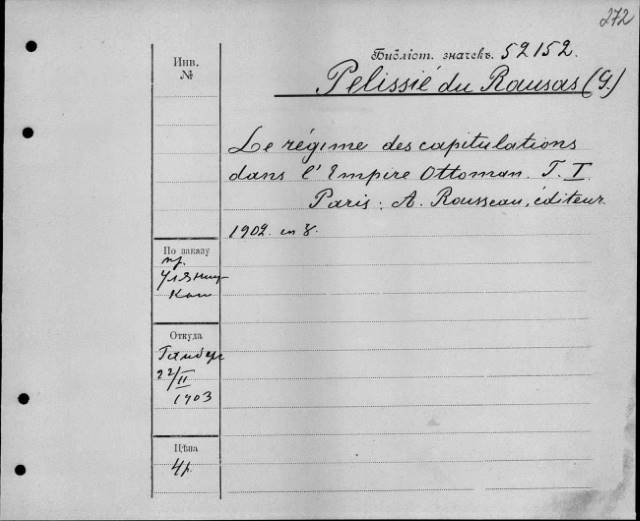 272
Инв.
№
Библіот. значекъ. 52152.
Pelissié du Rausas (G.)
Le régime des capitulations
dans l'Empire Ottoman. T. I.
Paris: A. Rousseau, éditeur
1902. in 8.
По заказу
пр.
Откуда
22/II
1903
Цѣна
4 р.